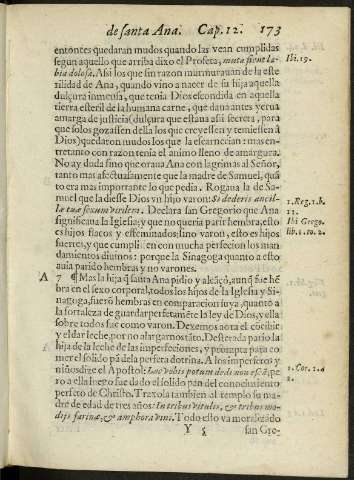 de santa Ana. Cap. 12. 173
entonces quedaran mudos quando las vean cumplidas
segun aquello que arriba dixo el Profeta, muta fient la-
bia dolosa. Assi los que sin razon murmurauan de la este
rilidad de Ana, quando vino a nacer de su hija aquella
dulçura inmensa, que tenia Dios escondida en aquella
tierra esteril de la humana carne, que daua antes yerua
amarga de justicia (dulçura que estaua assi secreta, para
que solos gozassen della los que creyessen y temiessen â
Dios) quedaron mudos los que la escarnecian: mas en-
tretanto con razon tenia el animo lleno de amargura.
No ay duda sino que oraua Ana con lagrimas al Señor,
tanto mas afectuosamente que la madre de Samuel, quã
to era mas importante lo que pedia. Rogaua la de Sa-
muel que la diesse Dios vn hijo varon: Si dederis ancil-
læ tuæ sexum virilem. Declara san Gregorio que Ana
significaua la Iglesia, y que no queria parir hembra, esto
es hijos flacos y efeminados: sino varon, esto es hijos
fuertes, y que cumplissen con mucha perfecion los man
damientos diuinos: porque la Sinagoga quanto a esto
auia parido hembras y no varones.
A 7 ¶ Mas la hija q̃ santa Ana pidio y alcãçó, aunq̃ fue hẽ
bra en el sexo corporal, todos los hijos de la Iglesia y Si-
nagoga, fuerõ hembras en comparacion suya, quanto a
la fortaleza de guardar perfetamẽte la ley de Dios, y ella
sobre todos fue como varon. Dexemos aora el cõcibir
y el dar leche, por no alargarnos tãto. Destetada pario la
hija de la leche de las imperfeciones, y prompta para co
mer el solido pã dela perfeta dotrina. A los imperfetos y
niños dize el Apostol: Lac vobis potum dedi non escã, pe
ro a ella luego fue dado el solido pan del conocimiento
perfeto de Christo. Traxola tambien al templo su ma-
dre de edad de tres años: In tribus vitulis, & tribus mo-
dijs farinæ, & amphora vini. Todo esto va moralizado
Y san Gre-
Ibi. 19.
1. Reg. 1. b.
11.
Ibi Grego.
lib. 1. ro. 2.
1. Cor. 2. a
2.